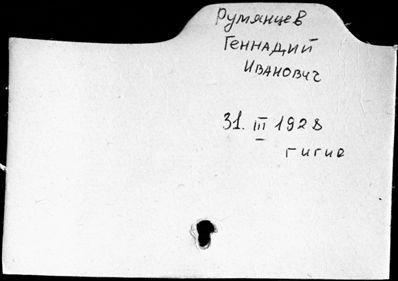 Румянцев
Геннадий
Иванович
31. III 1928
гигие